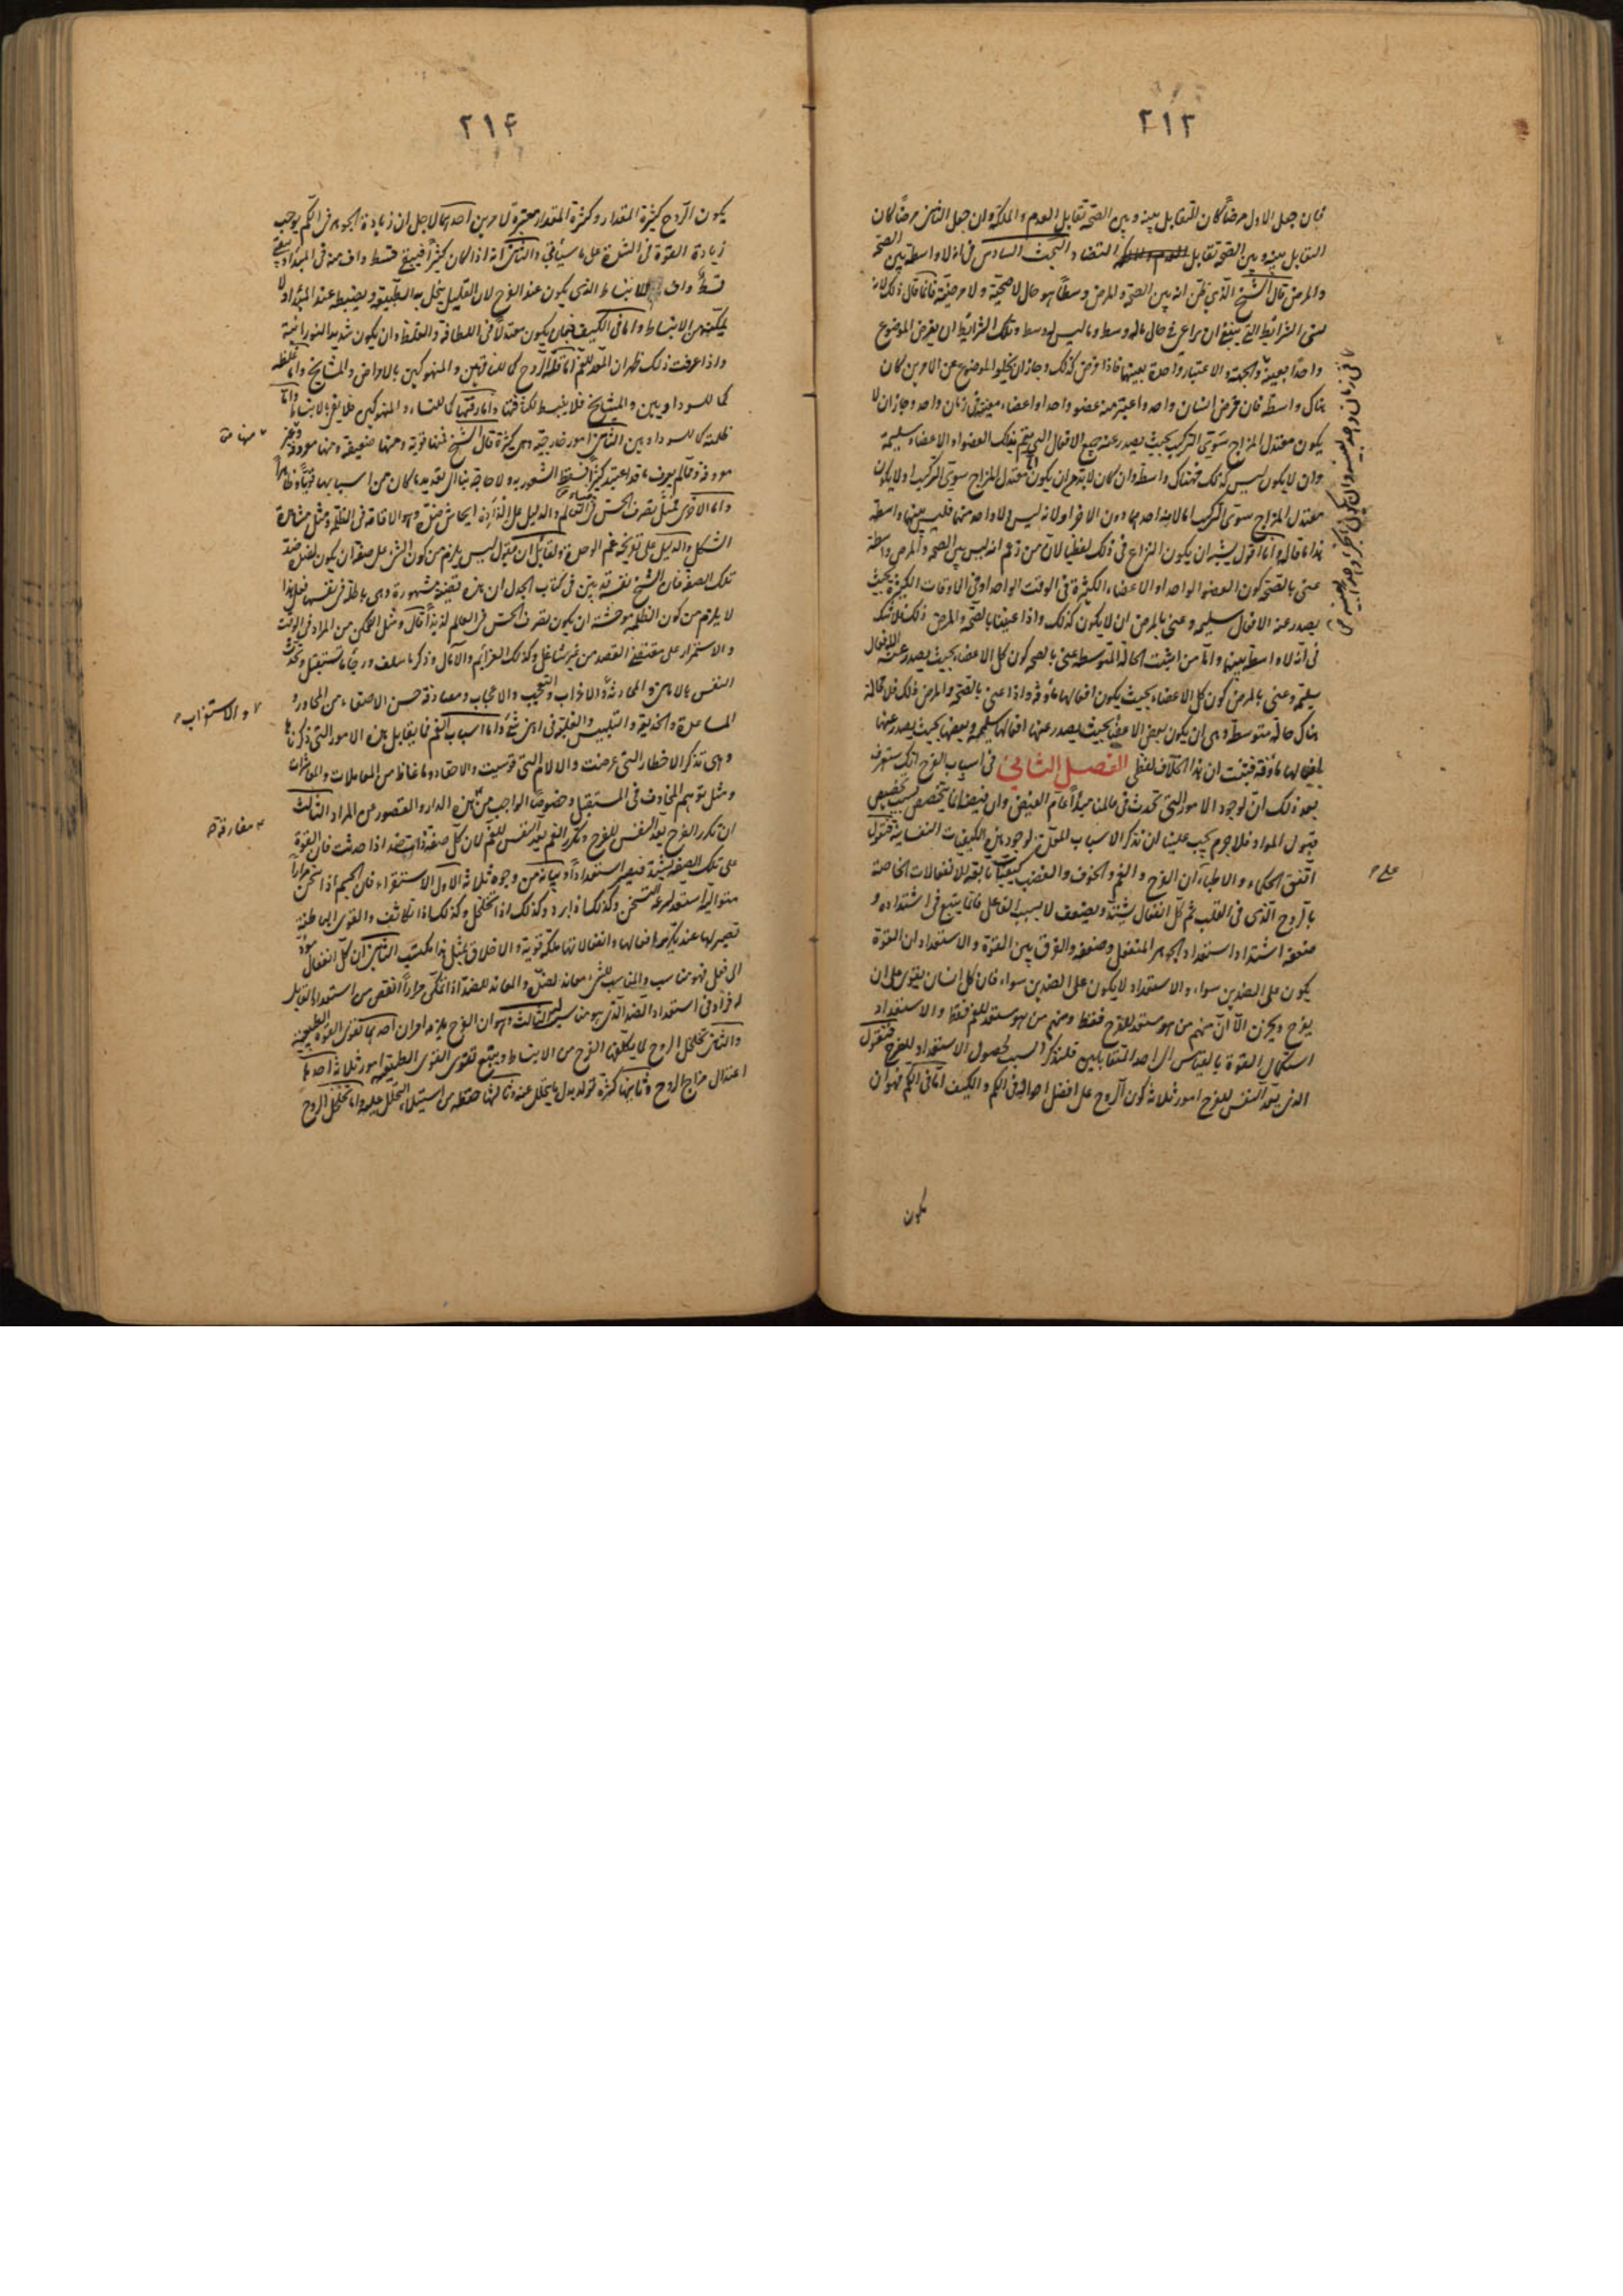 ٢١٣
فان جعل الاول مرضاً كان التقابل بينه وبين الصحة تقابل العدم والملكة وان جعل الثانى مرضاً كان
التقابل بينه وبين الصحة تقابل التضاد البحث السادس فى انه لا واسطة بين الصحة
والمرض قال الشيخ الذى يظن ان بين الصحة والمرض وسطاً هو حال لا صحية ولا مرضية فانما قال ذلك لانه
نسى الشرائط التى ينبغى ان يراعى فى حال ماله وسط وما ليس له وسط وتلك الشرائط ان يفرض الموضوع
واحداً بعينه والجهة والاعتبار واحدة بعينها فاذا فرض كذلك وجاز ان يخلو الموضوع عن الامرين كان
هناك واسطة فان فرض انسان واحد واعتبر منه عضو واحد او اعضاء معينة فى زمان واحد وجاز ان لا
يكون معتدل المزاج سوى التركيب بحيث يصدر عنه جميع الافعال التى يتم بذلك العضو او الاعضاء سليمة
وان لا يكون ليس كذلك فهناك واسطة وان كان لا بد من ان يكون معتدل المزاج سوى التركيب او لا يكون
معتدل المزاج سوى التركيب اما لاحدهما دون الاخر او لانه ليس ولا واحد منهما فليس بينهما واسطة
هذا ما قال وانا اقول يشبه ان يكون النزاع فى ذلك لفظياً لان من زعم انه ليس بين الصحة والمرض واسطة
عنى بالصحة كون العضو الواحد او الاعضاء الكثيرة فى الوقت الواحد او فى الاوقات الكثيرة بحيث
يصدر عنه الافعال سليمة وعنى بالمرض ان لا يكون كذلك واذا عنينا بالصحة والمرض ذلك فلا شك
فى انه لا واسطة بينهما واما من اثبت الحالة المتوسطة عنى بالصحة كون كل الاعضاء بحيث يصدر عنه الافعال
سليمة وعنى بالمرض كون كل الاعضاء بحيث يكون افعالها مأوفة واذا عنى بالصحة والمرض ذلك فلا محالة
هناك حالة متوسطة وهى ان يكون بعض الاعضاء بحيث يصدر عنها افعالها سليمة وبعضها بحيث يصدر عنها
افعالها مأوفة فثبت ان هذا الخلاف لفظى الفصل الثانى فى اسباب الفرح انك ستعرف
بعد ذلك ان لوجود الامور التى تحدث فى عالمنا مبدأ عام الفيض وان فيضه انما يتخصص بسبب تخصيص
قبول المواد فلا جرم يجب علينا ان نذكر الاسباب المعدة لوجود هذه الكيفيات النفسانية فنقول
اتفق الحكماء والاطباء ان الفرح والغم والخوف والغضب كيفيات تابعة للانفعالات الخاصة
بالروح الذى فى القلب ثم كل انفعال يشتد ويضعف لا بسبب الفاعل فانما يتبع فى اشتداده و
ضعفه اشتداد استعداد الجوهر المنفعل وضعفه والفرق بين القوة والاستعداد ان القوة
يكون على الضدين سواء والاستعداد لا يكون على الضدين سواء فان كل انسان يقوى على ان
يفرح ويحزن الا ان منهم من هو مستعد للفرح فقط ومنهم من هو مستعد للغم فقط والاستعداد
استكمال القوة بالقياس الى احد المتقابلين فلنذكر السبب لحصول الاستعداد للفرح فنقول
الذى يعد النفس للفرح امور ثلاثة كون الروح على افضل احواله فى الكم والكيف اما فى الكم فهو ان
يكون
٢١۴
يكون الروح كثيرة المقدار وكثرة المقدار معتبرة لامرين احدهما لاجل ان زيادة الجوهر فى الكم يوجب
زيادة القوة فى الشدة على ما سيأتى والثانى انه اذا كان كثيراً فيبقى قسط واف منه فى المبدأ ويبقى
قسط واف للانبساط الذى يكون عند الفرح لان القليل يبخل به الطبيعة ويضبطه عند المبدأ ولا
يمكنه من الانبساط واما فى الكيف فبان يكون معتدلاً فى اللطافة والغلظ وان يكون شديد النورانية
واذا عرفت ذلك ظهر ان المعد للغم اما قلة الروح كما للناقهين والمنهوكين بالامراض والمشايخ واما غلظه
كما للسوداويين والمشايخ فلا ينبسط لكثافتها واما رقتها كما للنساء والمنهوكين فلا يفى بالانبساط واما
ظلمته كما للسوداويين الثانى امور خارجية وهى كثيرة قال الشيخ فمنها قوية ومنها ضعيفة ومنها معروفة وغير
معروفة ومما لم يعرف ما قد اعتيد كثيراً فسقط الشعور به ولا حاجة بنا الى تعديد ما كان من اسبابها قوياً وظاهراً
واما الاخرى فمثل تصرف الحس فى العالم والدليل على الذاذه ايحاش ضده وهو الاقامة فى الظلمة ومثل مشاهدة
الشكل والدليل على تفريحه غم الوحدة ولقائل ان يقول ليس يلزم من كون الشئ على صفة ان يكون لضده ضد
تلك الصفة فان الشيخ نفسه بين فى كتاب الجدل ان هذه قضية مشهورة وهى باطلة فى نفسها فعلى هذا
لا يلزم من كون الظلمة موحشة ان يكون تصرف الحس فى العالم لذيذاً قال ومثل التمكن من المراد فى الوقت
والاستمرار على مقتضى القصد من غير شاغل وكذلك العزائم والآمال وذكر ما سلف ورجاء ما يستقبل وتحدث
النفس بالامانى والمحادثة والاغراب والتعجب والاعجاب ومصادفة حسن الاصغاء من المحاور و
المساعدة والخديعة والتلبيس والغلبة فى ادنى شئ واما اسباب الغم فما يقابل هذه الامور التى ذكرناها
وهى تذكر الاخطار التى عرضت والالام التى قوسيت والاحقاد وما غاظ من المعاملات والمعاشرات
ومثل توهم المخاوف فى المستقبل وخصوصاً الواجب من هذه الدار والقصور عن المراد الثالث
ان تكرر الفرح يعد النفس للفرح وتكرر الغم يعد النفس للغم لان كل صفة ذات ضد اذا حدثت فان القوة
على تلك الصفة يشتد فيصير استعداداً وبيانه من وجوه ثلاثة الاول الاستقراء فان الجسم اذا سخن مراراً
متوالية استعد لسرعة التسخن وكذلك اذا برد وكذلك اذا تخلخل وكذلك اذا تكاثف والقوى الباطنة
تصير لها عند تكرر افعالها وانفعالاتها ملكة قوية والاخلاق بمثل هذا مكتسب الثانى ان كل انفعال
الى فعل فهو مناسب والمناسب للشئ معاند لضده والمعاند للضد اذا تمكن مراراً انقص من استعداد القابل
له فزاد فى استعداد الضد الذى هو مناسبه الثالث وهو ان الفرح يلزمه امران احدهما تقوى القوة الطبيعية
والثانى تخلخل الروح لما يكلفه الفرح من الانبساط ويتبع تقوى القوى الطبيعية امور ثلاثة احدها
اعتدال مزاج الروح وثانيها كثرة تولد بدل ما يتحلل عنه وثالثها حفظه من استيلاء التحلل عليه واما تخلخل الروح
منها
والاستغراب
مفارقة